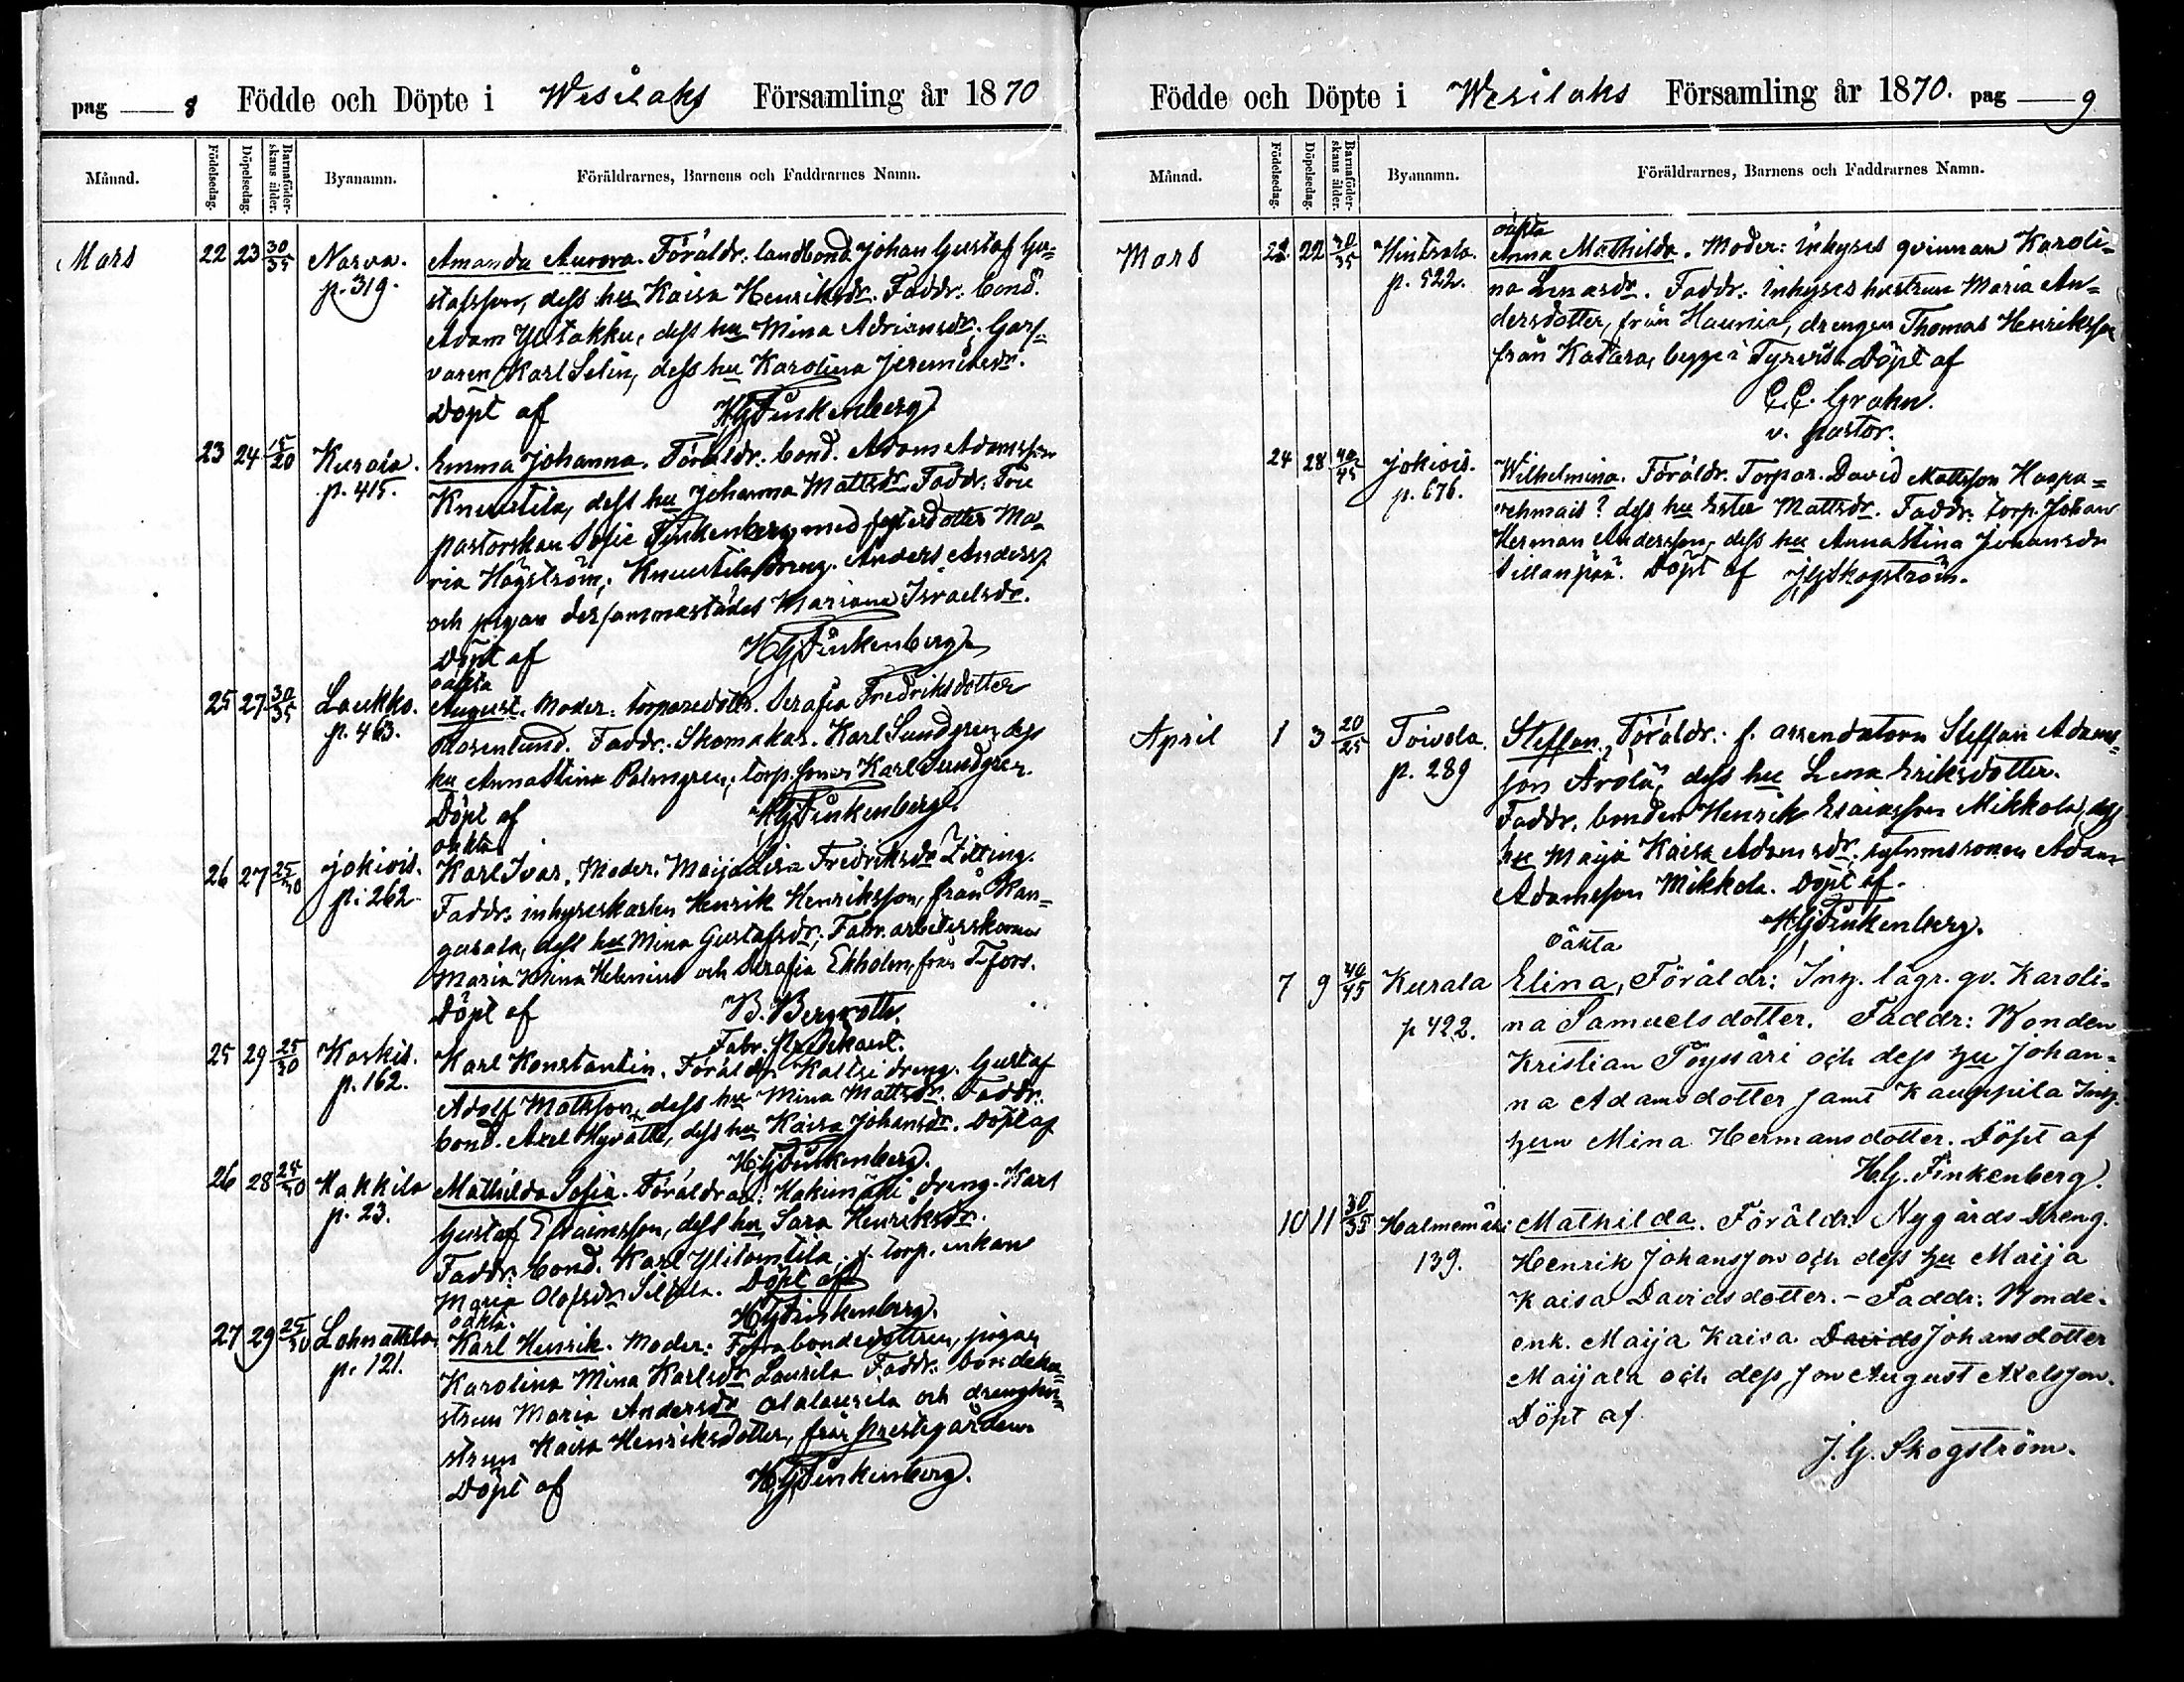 pag 8 Födde och Döpte i Wesilaks Församling år 1870
Månad. Födelsedag. Döpelsedag. Barnaföderskans ålder. Byanamn. Föräldrarnes, Barnens och Faddrarnes Namn.
Mars 22 23 30/35 Narva. Amanda Aurora. Föräldr: landbond. Johan Gustaf Gu=
p. 319. stafsson, dess hu Kaisa Henriksdr. Faddr: bond.
Adam Ylitakku, dess hu Mina Adriansdr; Garf=
varen Karl Selin, dess hu Karolina Jeremiasdr.
Döpt af HGFinkenberg
23 24 15/20 Kurala. Emma Johanna. Föräldr: bond. Adam Adamsson
p. 415. Knuutila, dess hu Johanna Mattsdr. Faddr:
pastorskan Sofie Finkenberg med systerdotter Ma=
ria Högström; Knuutila dreng. Anders Anderss.
och pigan dersammastädes Mariana Israelsdr.
Döpt af HGFinkenberg
oäkta
25 27 30/35 Laukko. August. Moder: torparedottr. Serafia Fredriksdotter
p. 463. Rosenlund. Faddr: Skomakar. Karl Sundgren dess
hu AnnaStina Palmgren; torp.sonen Karl Sundgren.
Döpt af HGFinkenberg.
oäkta
26 27 25/30 Jokiois. Karl Ivar. Moder: Maija Lisa Fredriksdr Zitting.
p. 262 Faddr: inhyseskarlen Henrik Henriksson, från Kan=
gasala, dess hu Mina Gustafsdr; Fabr. arbeterskorna
Maria Mina Helenius och Serafia Ekholm, från T:fors.
Döpt af B. Bergroth.
Fabr. Predikant.
25 29 25/30 Koskis. Karl Konstantin. Föräldr: Kaltsi dreng. Gustaf
p. 162. Adolf Mattsson, dess hu Mina Mattsdr. Faddr:
bond. Axel Hyvätti, dess hu Kaisa Johansdr. Döpt af
HGFinkenberg.
26 28 25/30 Hakkila Mathilda Sofia. Föräldrar: Hakimäki dreng. Karl
p. 23. Gustaf Efraimsson, dess hu Sara Henriksdr.
Faddr: bond. Karl Ylitomtila; f. torp. enkan
Maria Olofsdr Döpt af
HGFinkenberg.
oäkta.
27 29 25/30 Lohnattila Karl Henrik. Moder: bondedottren, pigan
p. 121. Karolina Mina Karlsdr Laurila Faddr: bondehu=
strun Maria Andersdr Alalaurila och drenghu=
strun Kaisa Henriksdotter, från Prestegården
Döpt af HGFinkenberg.
Födde och Döpte i Wesilaks Församling år 1870. pag 9
Månad. Födelsedag. Döpelsedag. Barnaföderskans ålder. Byanamn. Föräldrarnes, Barnens och Faddrarnes Namn.
oäkta
Mars 21 22 30/35 Hintsala. Anna Mathilda. Moder: inhyses qvinnan Karoli=
p. 522. na Lenasdr. Faddr: inhyses hustrun Maria An=
dersdotter, från Haunia, drengen Thomas Henriksson
från Katara, begge i Tyrvis. Döpt af
C.E. Grahn.
v. pastor.
24 28 40/45 Jokiois. Wilhelmina. Föräldr. Torpar. David Mattsson Haapa=
p. 676. rehmais? dess hu Ester Mattsdr. Faddr: torp. Johan
Herman Andersson, dess hu AnnaStina Johansdr
Sillanpää. Döpt af JGSkogström.
April 1 3 20/25 Toivola. Steffan. Föräldr: f. arrendatorn Steffan Adams=
p. 289 son Arola, dess hu Lena Eriksdotter.
Faddr. bonden Henrik Esaiasson Mikkola, dess
hu Maija Kaisa Adamsdr; sytnmssonen Adam
Adamsson Mikkola. Döpt af.
HGFinkenberg.
oäkta
7 9 40/45 Kurala Elina, Föräldr: Inh. lägr. qv. Karoli=
p 422. na Samuelsdotter. Faddr: Bonden
Kristian Töyssäri och dess hu Johan=
na Adamsdotter samt Kauppila Inh.
hun Mina Hermansdotter. Döpt af
H.G. Finkenberg.
10 11 30/35 Halmemäki Mathilda. Föräldr: Nygårds Dreng.
139. Henrik Johansson och dess hu Maija
Kaisa Davidsdotter. – Faddr: Bonde=
enk. Maija Kaisa Davids Johansdotter
Maijala och dess son August Axelsson.
Döpt af
J.G. Skogström.